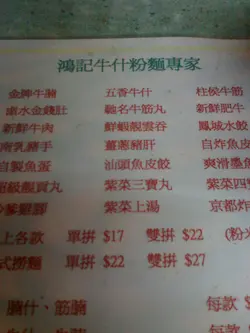 鴻記牛什粉麵專家
金牌牛腩 五香牛什 柱侯牛筋
滷水金錢肚 馳名牛筋丸 新鮮肥牛
新鮮牛肉 鮮蝦雲吞 鳳城水餃
南乳豬手 薑蔥豬肝 自炸魚皮
自製魚蛋 汕頭魚皮餃 爽滑墨魚
超級貢丸 紫菜三寶丸 紫菜四
雞腳 紫菜上湯 京都炸
上各款 單拼 $17 雙拼 $22 (粉
式撈麵 單拼 $22 雙拼 $27
腩什、筋腩 每款 $
每款